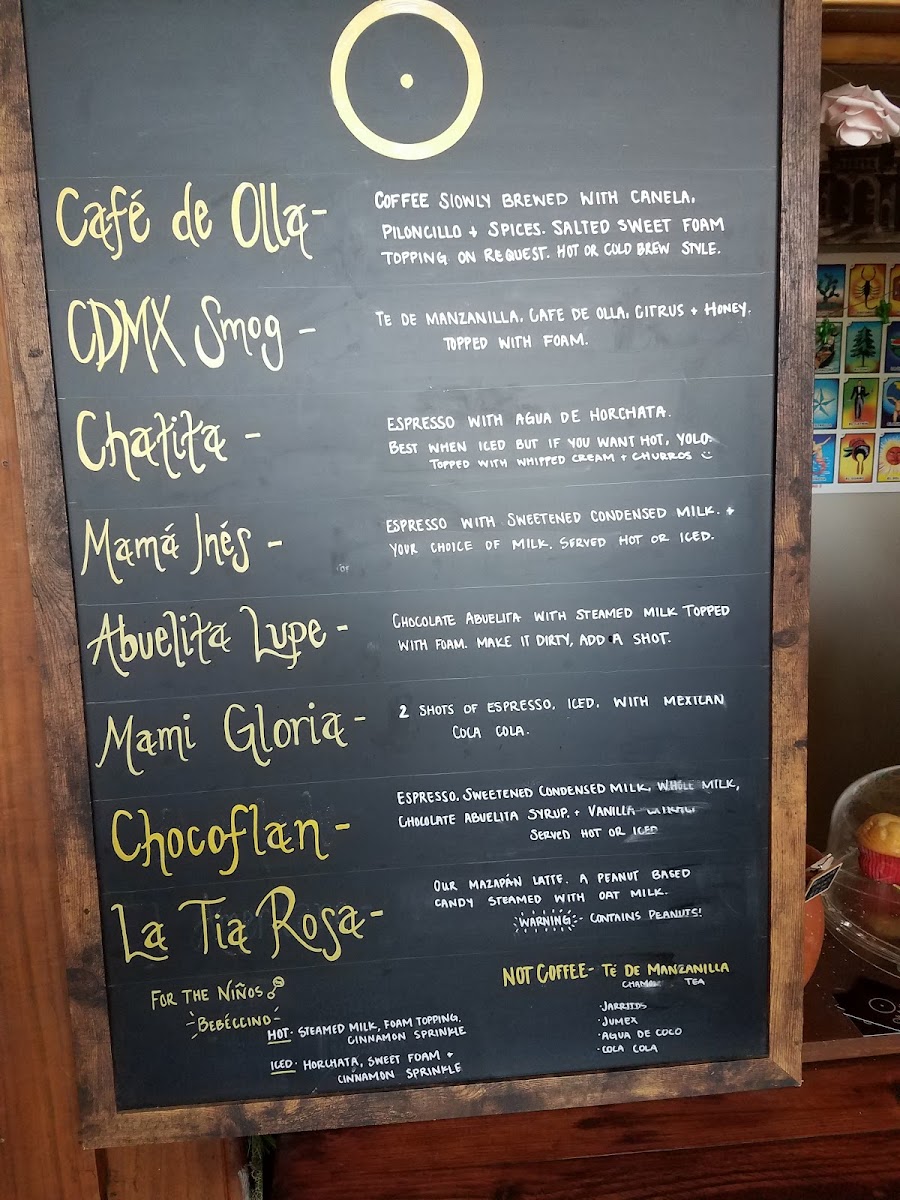 Café de Olla-
COFFEE SLOWLY BREWED WITH CANELA,
PILONCILLO + SPICES. SALTED SWEET FOAM
TOPPING ON REQUEST. HOT OR COLD BREW STYLE.
CDMX Smog -
TE DE MANZANILLA, CAFE DE OLLA, CITRUS + HONEY.
TOPPED WITH FOAM.
Chatita -
ESPRESSO WITH AGUA DE HORCHATA.
BEST WHEN ICED BUT IF YOU WANT HOT, YOLO.
TOPPED WITH WHIPPED CREAM + CHURROS
Mamá Inés -
ESPRESSO WITH SWEETENED CONDENSED MILK. +
YOUR CHOICE OF MILK. SERVED HOT OR ICED.
Abuelita Lupe -
CHOCOLATE ABUELITA WITH STEAMED MILK TOPPED
WITH FOAM. MAKE IT DIRTY, ADD A SHOT.
Mami Gloria-
2 SHOTS OF ESPRESSO, ICED, WITH MEXICAN
COCA COLA.
Chocoflan -
ESPRESSO, SWEETENED CONDENSED MILK, WHOLE MILK,
CHOCOLATE ABUELITA SYRUP, + VANILLA EXTRACT
SERVED HOT OR ICED
La Tia Rosa-
OUR MAZAPÁN LATTE. A PEANUT BASED
CANDY STEAMED WITH OAT MILK.
WARNING - CONTAINS PEANUTS!
FOR THE NIÑOS
BEBÉCCINO -
HOT- STEAMED MILK, FOAM TOPPING,
CINNAMON SPRINKLE
ICED- HORCHATA, SWEET FOAM +
CINNAMON SPRINKLE
NOT COFFEE- TÉ DE MANZANILLA
TEA
·JARRITOS
·JUMEX
·AGUA DE COCO
·COCA COLA